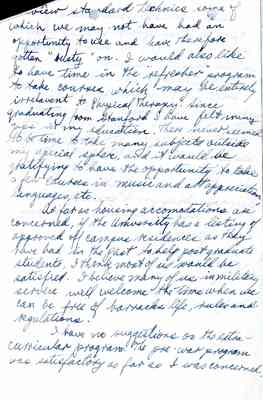 view standard technics some of
which we may not have had an
opportunity to use and have therefore
gotten "rusty" on. I would also like
to have time in the refresher program
to take courses which may be entirely
irrelevant to Physical Therapy. Since
graduating from Stanford I have felt many
gaps in my education. There never seemed
to be time to take many subjects outside
my special sphere, and it would be
gratifying to have the opportunity to take
a few courses in music and art appreciation,
languages, etc.
As far as housing accomodations are
concerned, if the University has a listing of
approved off campus residences as they
have had in the past to help post graduate
students, I think most of us would be
satisfied. I believe many of us in military
service will welcome the time when we
can be free of barracks life, rules and
regulations.
I have no suggestions on the extra-
curricular program. The pre-war program
was satisfactory as far as I was concerned.